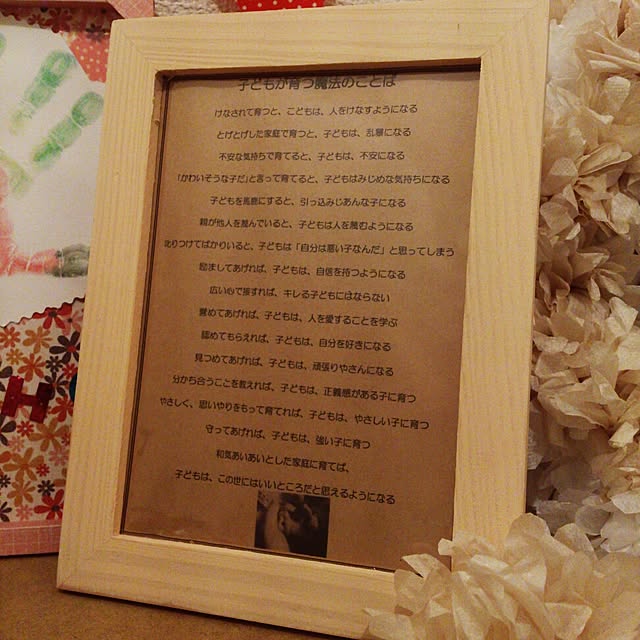 子どもが育つ魔法のことば
けなされて育つと、こどもは、人をけなすようになる
とげとげした家庭で育つと、子どもは、乱暴になる
不安な気持ちで育てると、子どもは、不安になる
「かわいそうな子だ」と言って育てると、子どもはみじめな気持ちになる
子どもを馬鹿にすると、引っ込みじあんな子になる
親が他人を羨んでいると、子どもは人を羨むようになる
叱りつけてばかりいると、子どもは「自分は悪い子なんだ」と思ってしまう
励ましてあげれば、子どもは、自信を持つようになる
広い心で接すれば、キレる子どもにはならない
誉めてあげれば、子どもは、人を愛することを学ぶ
認めてもらえれば、子どもは、自分を好きになる
見つめてあげれば、子どもは、頑張りやさんになる
分かち合うことを教えれば、子どもは、正義感がある子に育つ
やさしく、思いやりをもって育てれば、子どもは、やさしい子に育つ
守ってあげれば、子どもは、強い子に育つ
和気あいあいとした家庭に育てば、
子どもは、この世にはいいところだと思えるようになる
H